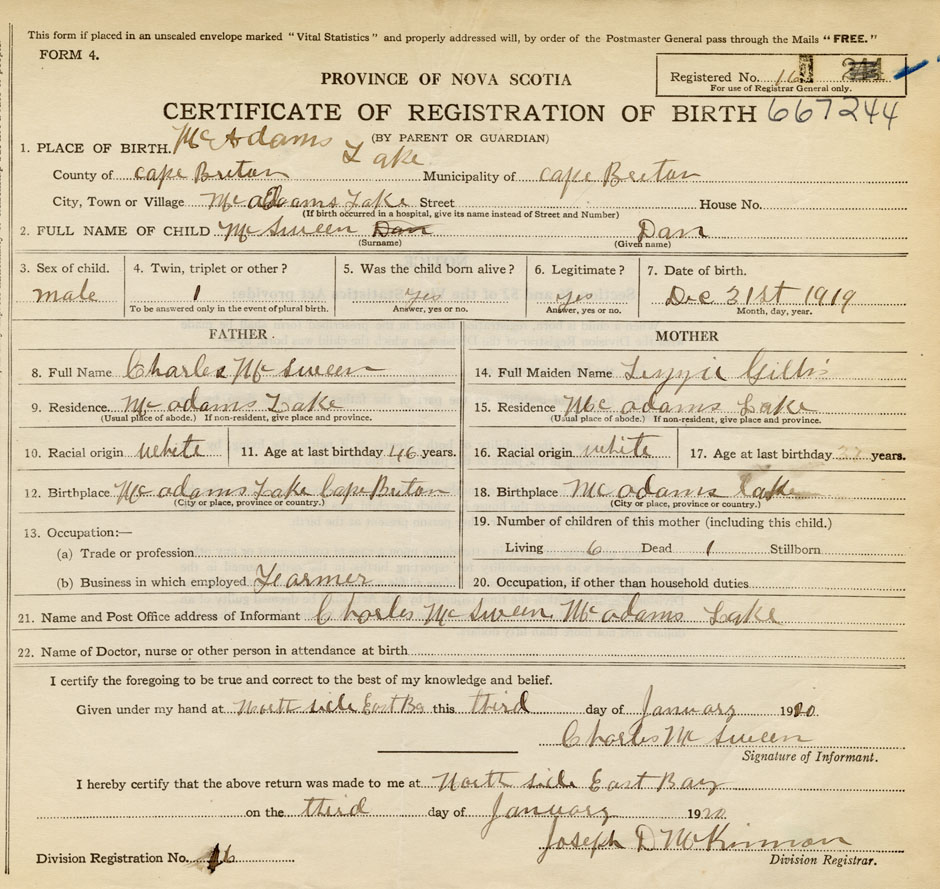 This form if placed in an unsealed envelope marked "Vital Statistics" and properly addressed will, by order of the Postmaster General pass through the Mails "FREE."
FORM 4.
PROVINCE OF NOVA SCOTIA
Registered No. 16
For use of Registrar General only.
CERTIFICATE OF REGISTRATION OF BIRTH 667244
(BY PARENT OR GUARDIAN)
1. PLACE OF BIRTH. McAdams Lake
County of Cape Breton Municipality of Cape Breton
City, Town or Village McAdams Lake Street House No.
(If birth occurred in a hospital, give its name instead of Street and Number)
2. FULL NAME OF CHILD McSween Dan Dan
(Surname) (Given name)
3. Sex of child. 4. Twin, triplet or other? 5. Was the child born alive? 6. Legitimate? 7. Date of birth.
male 1 yes yes Dec 31st 1919
To be answered only in the event of plural birth. Answer, yes or no. Answer, yes or no. Month, day, year.
FATHER MOTHER
8. Full Name Charles McSween 14. Full Maiden Name Lizzie Gillis
9. Residence. McAdams Lake 15. Residence McAdams Lake
(Usual place of abode.) If non-resident, give place and province. (Usual place of abode.) If non-resident, give place and province.
10. Racial origin white 11. Age at last birthday 46 years. 16. Racial origin white 17. Age at last birthday years.
12. Birthplace McAdams Lake Cape Breton 18. Birthplace McAdams Lake
(City or place, province or country.) (City or place, province or country.)
13. Occupation:— 19. Number of children of this mother (including this child.)
(a) Trade or profession Living 6 Dead 1 Stillborn
(b) Business in which employed Fearmer 20. Occupation, if other than household duties
21. Name and Post Office address of Informant Charles McSween McAdams Lake
22. Name of Doctor, nurse or other person in attendance at birth
I certify the foregoing to be true and correct to the best of my knowledge and belief.
Given under my hand at North side East Ba this third day of January 1920
Charles McSween
Signature of Informant.
I hereby certify that the above return was made to me at North side East Bay
on the third day of January 1920
Joseph D McKinnon
Division Registration No. 16 Division Registrar.